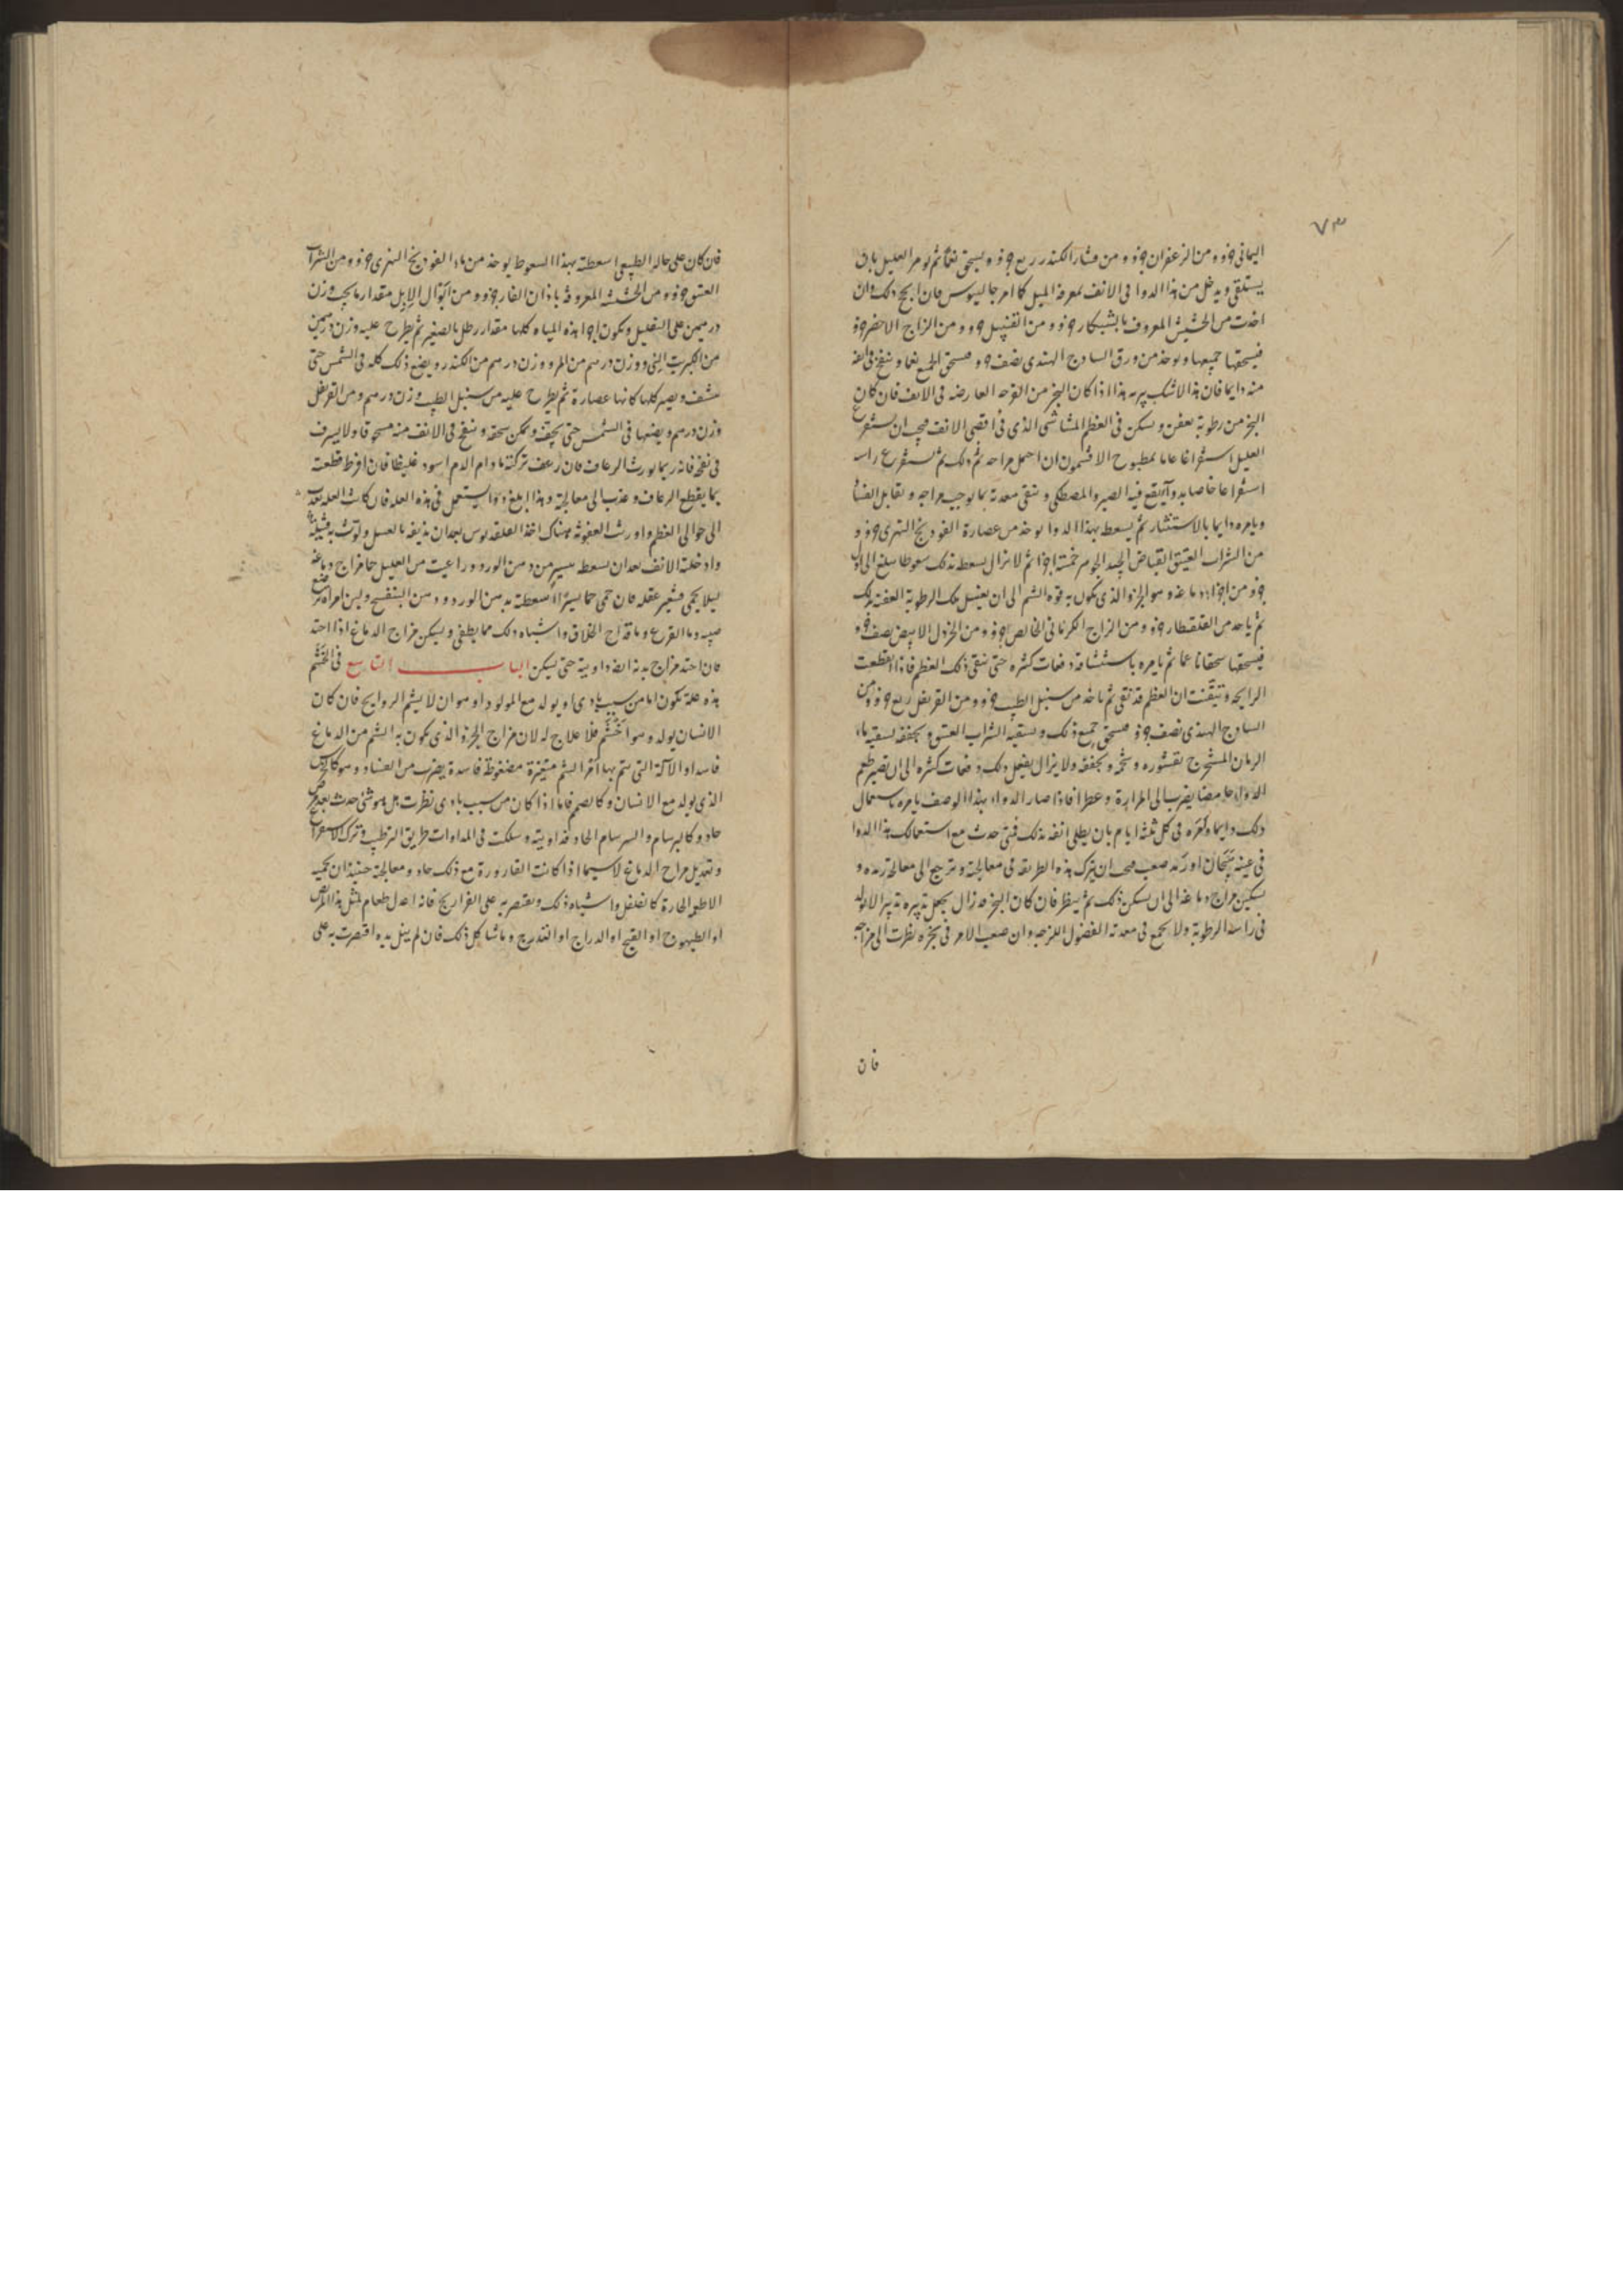 ٧٣
اليمانى جزو ومن الزعفران جزو ومن قشار الكندر ربع جزو ويسحق نعما ثم يومر العليل بان
يستلقى ويدخل من هذا الدوا فى الانف بمغرفة الميل كما امر جالينوس فان انجح ذلك وان
اخذت من الحشيش المعروف بالشبكار جزو ومن القنبيل جزو ومن الزاج الاخضر جزو
فيسحقها جميعها ويوخذ من ورق الساذج الهندى نصف جزو فيسحق الجميع نعما وينفخ فى انفه
منه دايما فان هذا الاشك يبريه هذا اذا كان البخر من القرحه العارضه فى الانف فان كان
البخر من رطوبة تعفن ويسكن فى العظم المشاشى الذى فى اقصى الانف فيجب ان يستفرغ
العليل استفراغا عاما بمطبوخ الافتيمون ان احمل مزاجه ثم ذلك ثم يستفرغ راسه
استفراغا خاصا بدوا يقع فيه الصبر والمصطكى وينقى معدته بما يوجب مزاجه ويقابل الغشا
ويامره دايما بالاستنشار ثم يسعط بهذا الدوا يوخذ من عصارة الفودنج النهرى جزو و
من الشراب العتيق القباض الجيد الجوهر خمسة اجزا ثم لا يزال يسعط بذلك سعوطا يبلغ الى اول
جزو من اجزاء دماغه وهو الجزو الذى يكون به قوه الشم الى ان يغسل تلك الرطوبة العفنه بذلك
ثم ياخذ من القلقطار جزو ومن الزاج الكرمانى الخالص جزو ومن الخردل الابيض نصف جزو
فيسحقها سحقا ناعما ثم يامره باستنشاقه دفعات كثيره حتى ينقى ذلك العظم فاذا انقطعت
الرايحه وتيقنت ان العظم قد نقى ثم ياخذ من سنبل الطيب جزو ومن القرنفل ربع جزو ومن
الساذج الهندى نصف جزو فيسحق جميع ذلك ويسقيه الشراب العتيق ويجففه يسقيه ماء
الرمان المستخرج بقشوره وشحمه ويجففه ولا يزال يفعل ذلك دفعات كثيره الى ان تصير طعم
الدوا حامضا يضرب الى المرارة وعطرا فاذا صار الدواء بهذا الوصف يامره باستعمال
ذلك دايما وتامره فى كل ثلثة ايام بان يطلى انفه بذلك فمتى حدث مع استعمالك هذا الدوا
فى عينه هيجان او رمد صعب فيجب ان يترك هذه الطريقه فى معالجته وترجع الى معالجة رمده و
تسكين مزاج دماغه الى ان يسكن ذلك ثم ينظر فان كان البخر قد زال يجعل تدبيره تدبيرا لا تولد
فى راسه الرطوبة ولا يجمع فى معدته الفضول اللزجه وان صعب الامر فى بخره نظرت الى مزاجه
فان
فان كان على حاله الطبيعى اسعطته بهذا السعوط يوخذ من ماء الفودنج النهرى جزو ومن الشراب
العتيق جزو ومن الحشيشه المعروفة باذان الفار جزو ومن ابوال الابل مقدار ما يجب وزن
درهمين على التقليل ويكون اجزا هذه المياه كلها مقدار رطل بالصغير ثم يطرح عليه وزن درهمين
من الكبريت النى ووزن درهم من المر ووزن درهم من الكندر ويضع ذلك كله فى الشمس حتى
ينشف ويصير كلها كانها عصارة ثم يطرح عليه من سنبل الطيب وزن درهم ومن القرنفل
وزن درهم ويضعها فى الشمس حتى يجف ويمكن سحقه وينفخ فى الانف منه مسحوقا ولا يسرف
فى نفخه فانه ربما يورث الرعاف فان رعف تركته ما دام الدم اسود غليظا فان افرط قطعت
بما يقطع الرعاف وعدت الى معالجته وهذا ابلغ دوا يستعمل فى هذه العله فان كانت العله تعدت
الى حوالى العظم واورثت العفونة هناك اخذ القلقديس بعد ان يذيفه بالعسل ولوثت به فتيلة
وادخلته الانف بعد ان يسعط بيسير من دهن الورد وراعيت من العليل حفا مزاج دماغه
ليلا يحمى فيتغير عقله فان حمى حما يسيرا اسعطته بدهن الورد ودهن البنفسج ولبن امراة مرضع
صبيه وما القرع وما قداح الخلاف واشباه ذلك مما يطفى ويسكن مزاج الدماغ اذا احتد
فان احتد مزاج بدنه ايضا داويته حتى يسكن الباب التاسع فى الخشم
هذه علة تكون اما من سبب بادى او يولد مع المولود او هو ان لا يشم الروايح فان كان
الانسان يولد وهو اخشم فلا علاج له لان مزاج الجزو الذى يكون به الشم من الدماغ
فاسد او الآلة التى يتم بها امر الشم متغيرة مضغوطة فاسدة بضرب من الفساد وهو كالخرس
الذى يولد مع الانسان وكالصمم فاما اذا كان من سبب بادى نظرت هل هو شئ حدث بعد مرض
حاد وكالبرسام والسرسام الحاد فداويته وسلكت فى المداوات طريق الترطيب وترك الاستفراغ
وتبديل مزاج الدماغ لا سيما اذا كانت القارورة مع ذلك حاد ومعالجته حينئذ ان تحميه
الاطعمه الحارة كالفلفل واشباه ذلك ويقتصر به على الفراريج فانه اعدل طعام لمثل هذا المرض
او الطيهوج او القبج او الدراج او التدرج وما شاكل ذلك فان لم ينل يديه اقتصرت به على